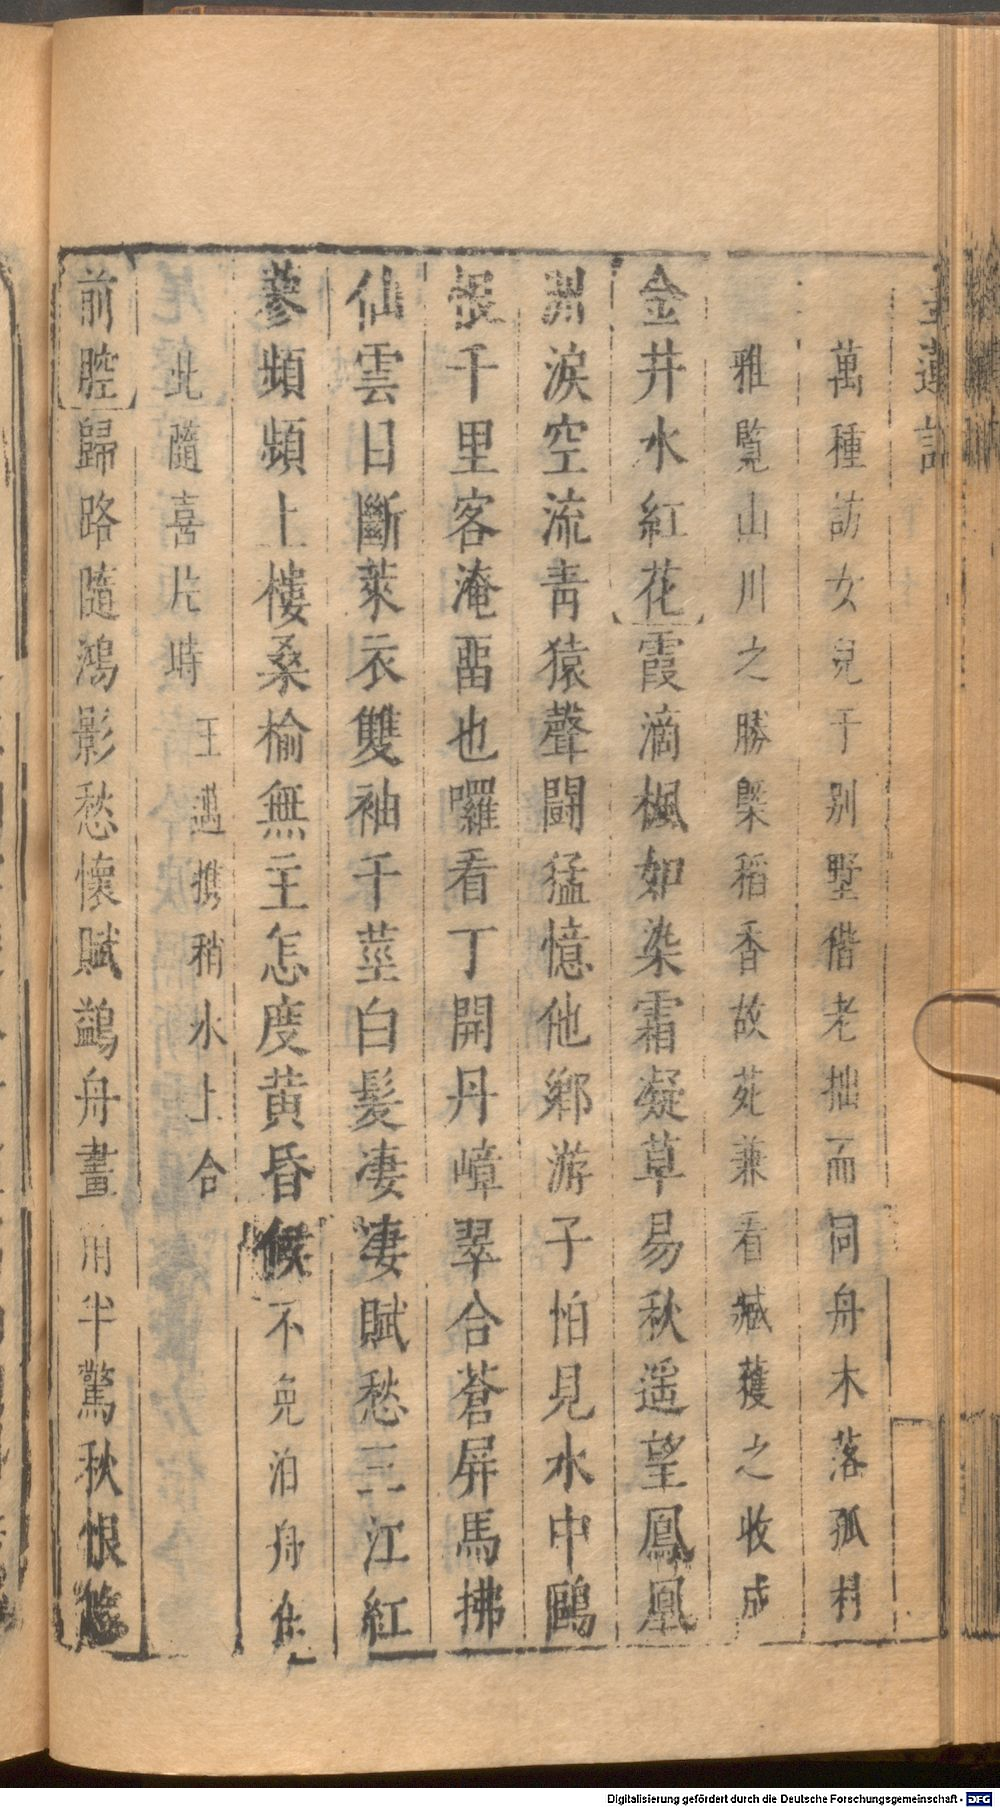 玉蓮記
萬種訪女兒于别墅偕老拙而同舟木落孤村
雅覧山川之勝槩稻香故苑兼看臧獲之收成
金井水紅花霞滴楓如染霜凝草易秋遥望鳳凰
洲淚空流靑猿聲闘猛憶他鄉游子怕見水中鷗
恨千里客淹畱也囉看丁開丹嶂翠合蒼屏馬拂
仙雲日斷萊衣雙袖千莖白髪凄凄賦愁三江紅
蓼頻頻上樓桑榆無主怎度黄昏候不免泊舟在
此隨喜片時
王遇携稍水上合
前腔歸路隨鴻影愁懷賦鷁舟畫 半驚秋恨
Digitalisierung gefördert durch die Deutsche Forschungsgemeinschaft - DFG